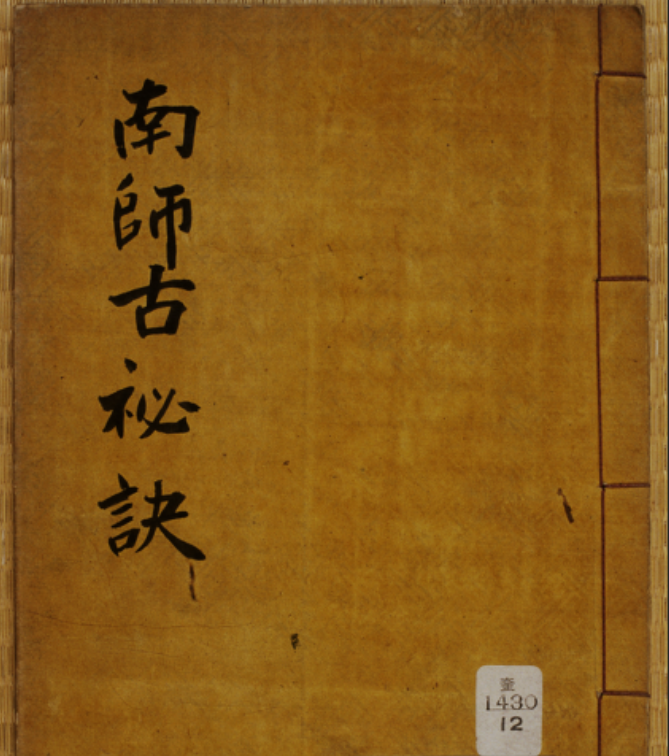 南師古祕訣
奎
1430
12